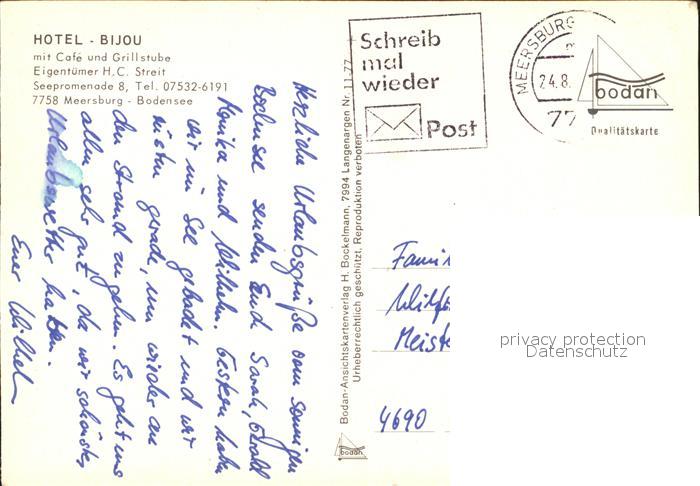 HOTEL - BIJOU
mit Café und Grillstube
Eigentümer H.C. Streit
Seepromenade 8, Tel. 07532-6191
7758 Meersburg - Bodensee
Herzliche Urlaubsgrüße vom sonnigen
Bodensee senden Euch Sarah,
Monika und Wilhelm. Gestern haben
wir im See gebadet und wir
rüsten gerade, um wieder an
den Strand zu gehen. Es geht uns
allen sehr gut, da wir schönstes
Urlaubswetter haben.
Euer Wilhelm
Bodan-Ansichtskartenverlag H. Bockelmann, 7994 Langenargen Nr. 11.77
Urheberrechtlich geschützt, Reproduktion verboten
bodan
Schreib
mal
wieder
Post
MEERSBURG
24.8.
77
bodan
Qualitätskarte
Fami
Meiste
4690
privacy protection
Datenschutz